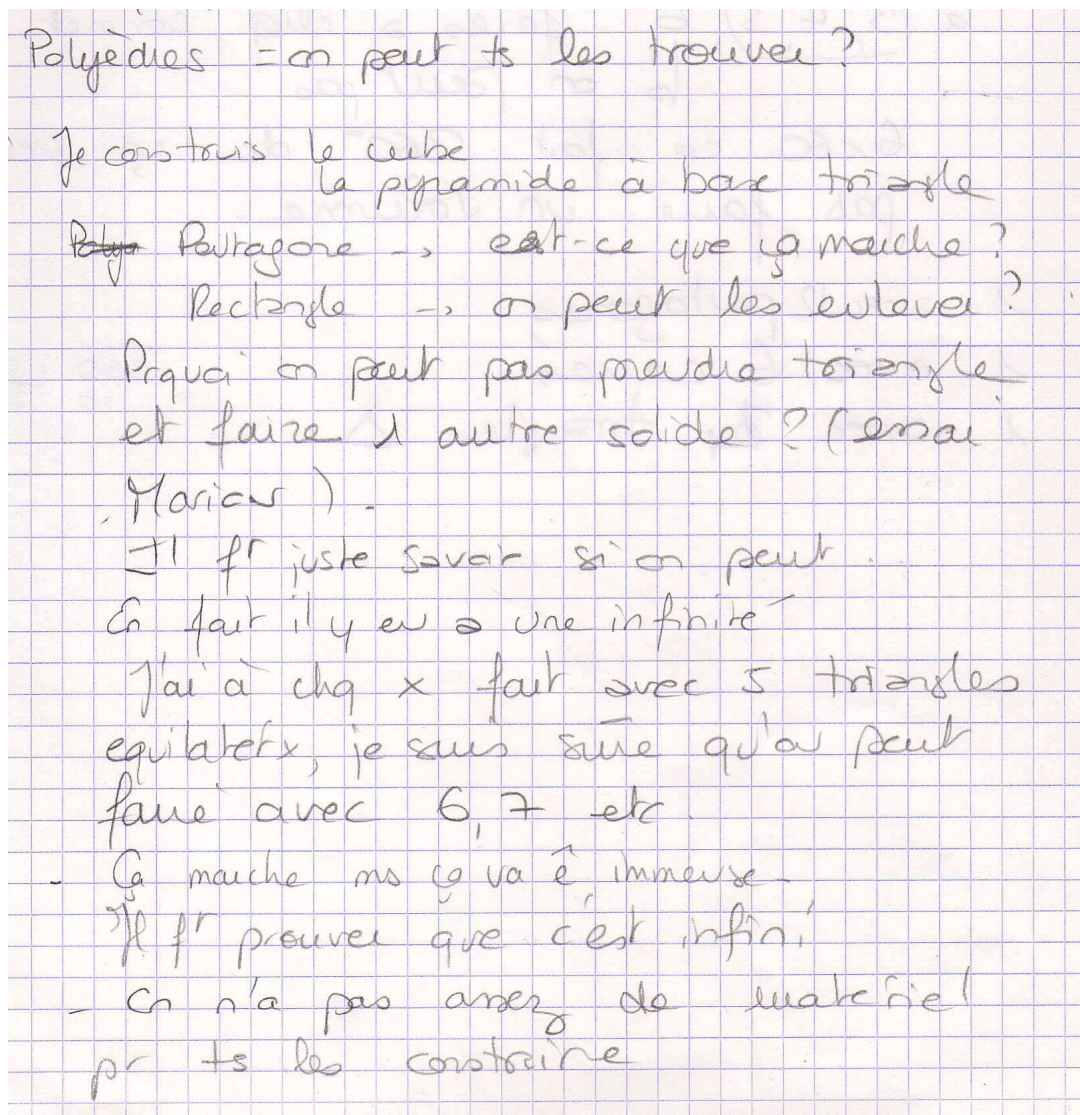 Polyèdres = on peut ts les trouver?
Je construis le cube
la pyramide à base triangle
Pentagone -> est-ce que ça marche?
Rectangle -> on peut les enlever?
Prquoi on peut pas prendre triangle
et faire 1 autre solide? (essai
Marion).
Il ft juste savoir si on peut.
En fait il y en a une infinité
J'ai à chq x fait avec 5 triangles
equilaterx, je suis sûre qu'on peut
faire avec 6, 7 etc.
- Ça marche ms ça va ê immense
Il ft prouver que c'est infini
- On n'a pas assez de matériel
pr ts les construire